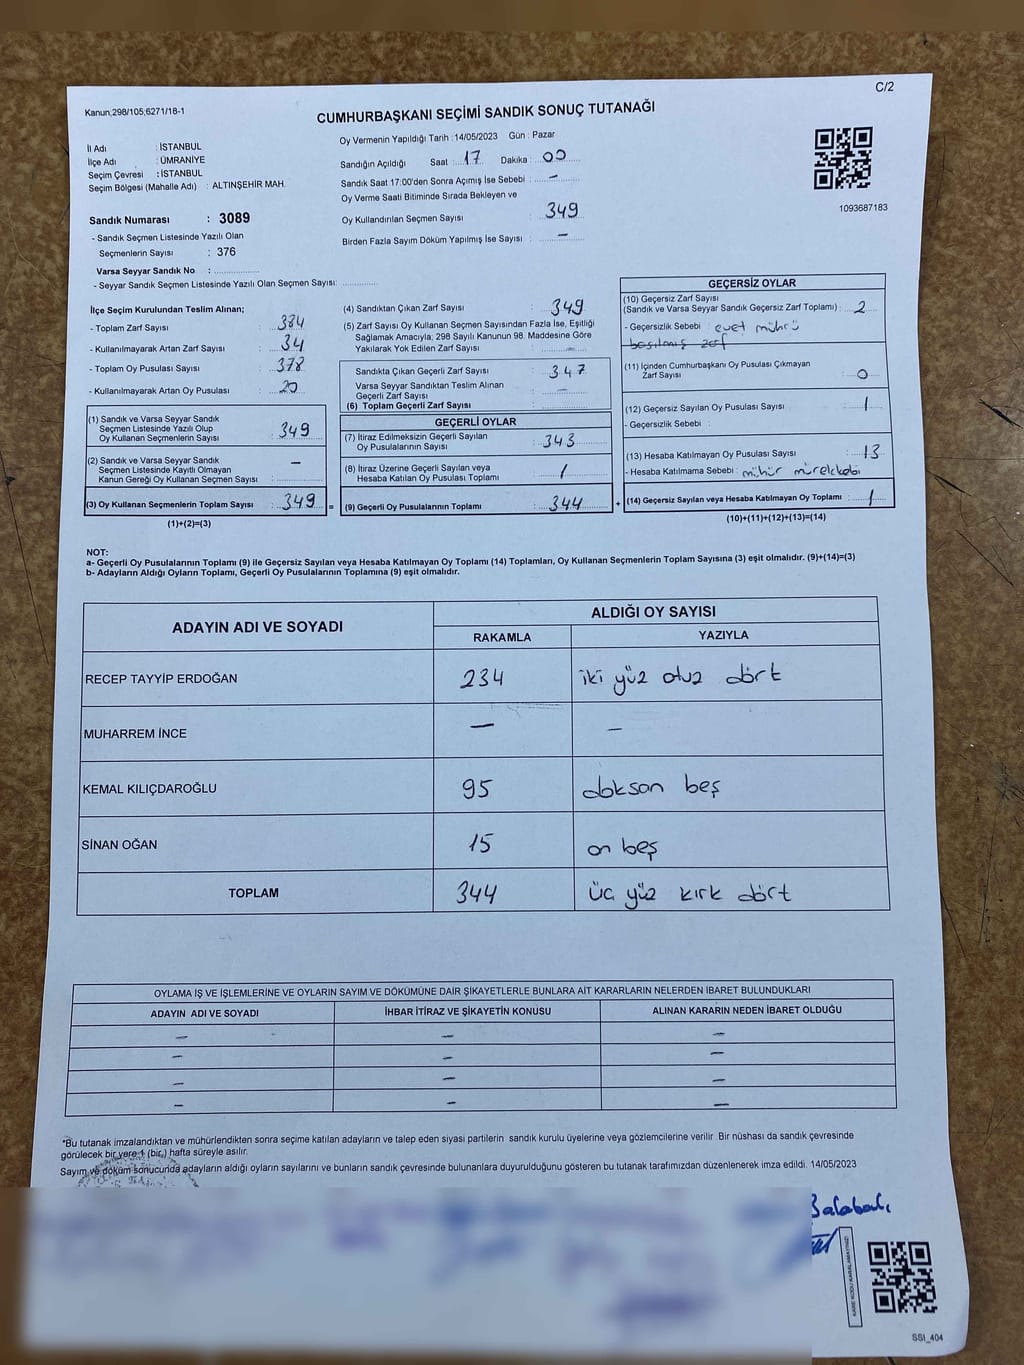 C/2
Kanun:298/105;6271/18-1
CUMHURBAŞKANI SEÇİMİ SANDIK SONUÇ TUTANAĞI
İl Adı : İSTANBUL
İlçe Adı : ÜMRANİYE
Seçim Çevresi : İSTANBUL
Seçim Bölgesi (Mahalle Adı) : ALTINŞEHİR MAH.
Sandık Numarası : 3089
- Sandık Seçmen Listesinde Yazılı Olan
Seçmenlerin Sayısı : 376
Varsa Seyyar Sandık No :
- Seyyar Sandık Seçmen Listesinde Yazılı Olan Seçmen Sayısı:
Oy Vermenin Yapıldığı Tarih : 14/05/2023 Gün : Pazar
Sandığın Açıldığı Saat : 17 Dakika : 00
Sandık Saat 17:00'den Sonra Açımış İse Sebebi : —
Oy Verme Saati Bitiminde Sırada Bekleyen ve
Oy Kullandırılan Seçmen Sayısı : 349
Birden Fazla Sayım Döküm Yapılmış İse Sayısı : —
1093687183
İlçe Seçim Kurulundan Teslim Alınan;
- Toplam Zarf Sayısı : 384
- Kullanılmayarak Artan Zarf Sayısı : 34
- Toplam Oy Pusulası Sayısı : 378
- Kullanılmayarak Artan Oy Pusulası : 20
(1) Sandık ve Varsa Seyyar Sandık
Seçmen Listesinde Yazılı Olup
Oy Kullanan Seçmenlerin Sayısı : 349
(2) Sandık ve Varsa Seyyar Sandık
Seçmen Listesinde Kayıtlı Olmayan
Kanun Gereği Oy Kullanan Seçmen Sayısı : —
(3) Oy Kullanan Seçmenlerin Toplam Sayısı : 349 =
(1)+(2)=(3)
(4) Sandıktan Çıkan Zarf Sayısı : 349
(5) Zarf Sayısı Oy Kullanan Seçmen Sayısından Fazla İse, Eşitliği
Sağlamak Amacıyla; 298 Sayılı Kanunun 98. Maddesine Göre
Yakılarak Yok Edilen Zarf Sayısı : —
Sandıkta Çıkan Geçerli Zarf Sayısı : 347
Varsa Seyyar Sandıktan Teslim Alınan
Geçerli Zarf Sayısı : —
(6) Toplam Geçerli Zarf Sayısı :
GEÇERLİ OYLAR
(7) İtiraz Edilmeksizin Geçerli Sayılan
Oy Pusulalarının Sayısı : 343
(8) İtiraz Üzerine Geçerli Sayılan veya
Hesaba Katılan Oy Pusulası Toplamı : 1
(9) Geçerli Oy Pusulalarının Toplamı : 344 +
GEÇERSİZ OYLAR
(10) Geçersiz Zarf Sayısı
(Sandık ve Varsa Seyyar Sandık Geçersiz Zarf Toplamı) : 2
- Geçersizlik Sebebi : evet mührü
basılmış zarf
(11) İçinden Cumhurbaşkanı Oy Pusulası Çıkmayan
Zarf Sayısı : 0
(12) Geçersiz Sayılan Oy Pusulası Sayısı : 1
- Geçersizlik Sebebi :
(13) Hesaba Katılmayan Oy Pusulası Sayısı : 13
- Hesaba Katılmama Sebebi : mühür mürekkebi
(14) Geçersiz Sayılan veya Hesaba Katılmayan Oy Toplamı : 1
(10)+(11)+(12)+(13)=(14)
NOT:
a- Geçerli Oy Pusulalarının Toplamı (9) ile Geçersiz Sayılan veya Hesaba Katılmayan Oy Toplamı (14) Toplamları, Oy Kullanan Seçmenlerin Toplam Sayısına (3) eşit olmalıdır. (9)+(14)=(3)
b- Adayların Aldığı Oyların Toplamı, Geçerli Oy Pusulalarının Toplamına (9) eşit olmalıdır.
ADAYIN ADI VE SOYADI ALDIĞI OY SAYISI
RAKAMLA YAZIYLA
RECEP TAYYİP ERDOĞAN 234 iki yüz otuz dört
MUHARREM İNCE — —
KEMAL KILIÇDAROĞLU 95 doksan beş
SİNAN OĞAN 15 on beş
TOPLAM 344 üç yüz kırk dört
OYLAMA İŞ VE İŞLEMLERİNE VE OYLARIN SAYIM VE DÖKÜMÜNE DAİR ŞİKAYETLERLE BUNLARA AİT KARARLARIN NELERDEN İBARET BULUNDUKLARI
ADAYIN ADI VE SOYADI İHBAR İTİRAZ VE ŞİKAYETİN KONUSU ALINAN KARARIN NEDEN İBARET OLDUĞU
— — —
— — —
— — —
— — —
*Bu tutanak imzalandıktan ve mühürlendikten sonra seçime katılan adayların ve talep eden siyasi partilerin sandık kurulu üyelerine veya gözlemcilerine verilir. Bir nüshası da sandık çevresinde
görülecek bir yere 1 (bir) hafta süreyle asılır.
Sayım ve döküm sonucunda adayların aldığı oyların sayılarını ve bunların sandık çevresinde bulunanlara duyurulduğunu gösteren bu tutanak tarafımızdan düzenlenerek imza edildi. 14/05/2023
KARE KODU KARALAMAYINIZ!
SSI_404